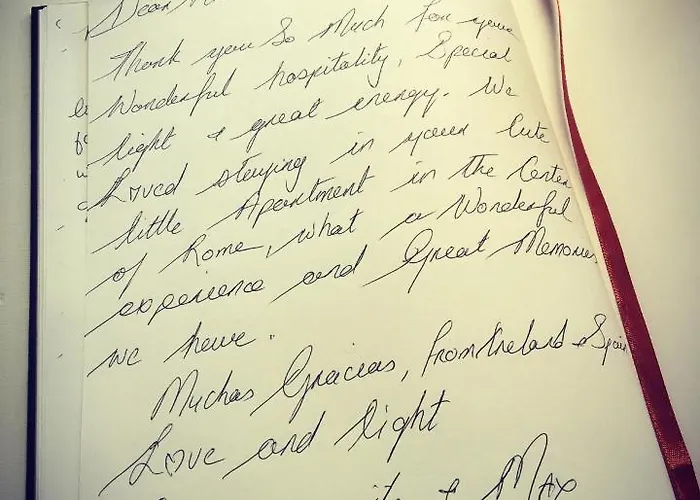 Dear
Thank you So Much for your
Wonderful hospitality, Special
light & great energy. We
Loved staying in your Cute
little Apartment in the Center
of Rome, what a Wonderful
experience and Great Memories
we have.
Muchas Gracias, from Ireland & Spain
Love and light
& Max